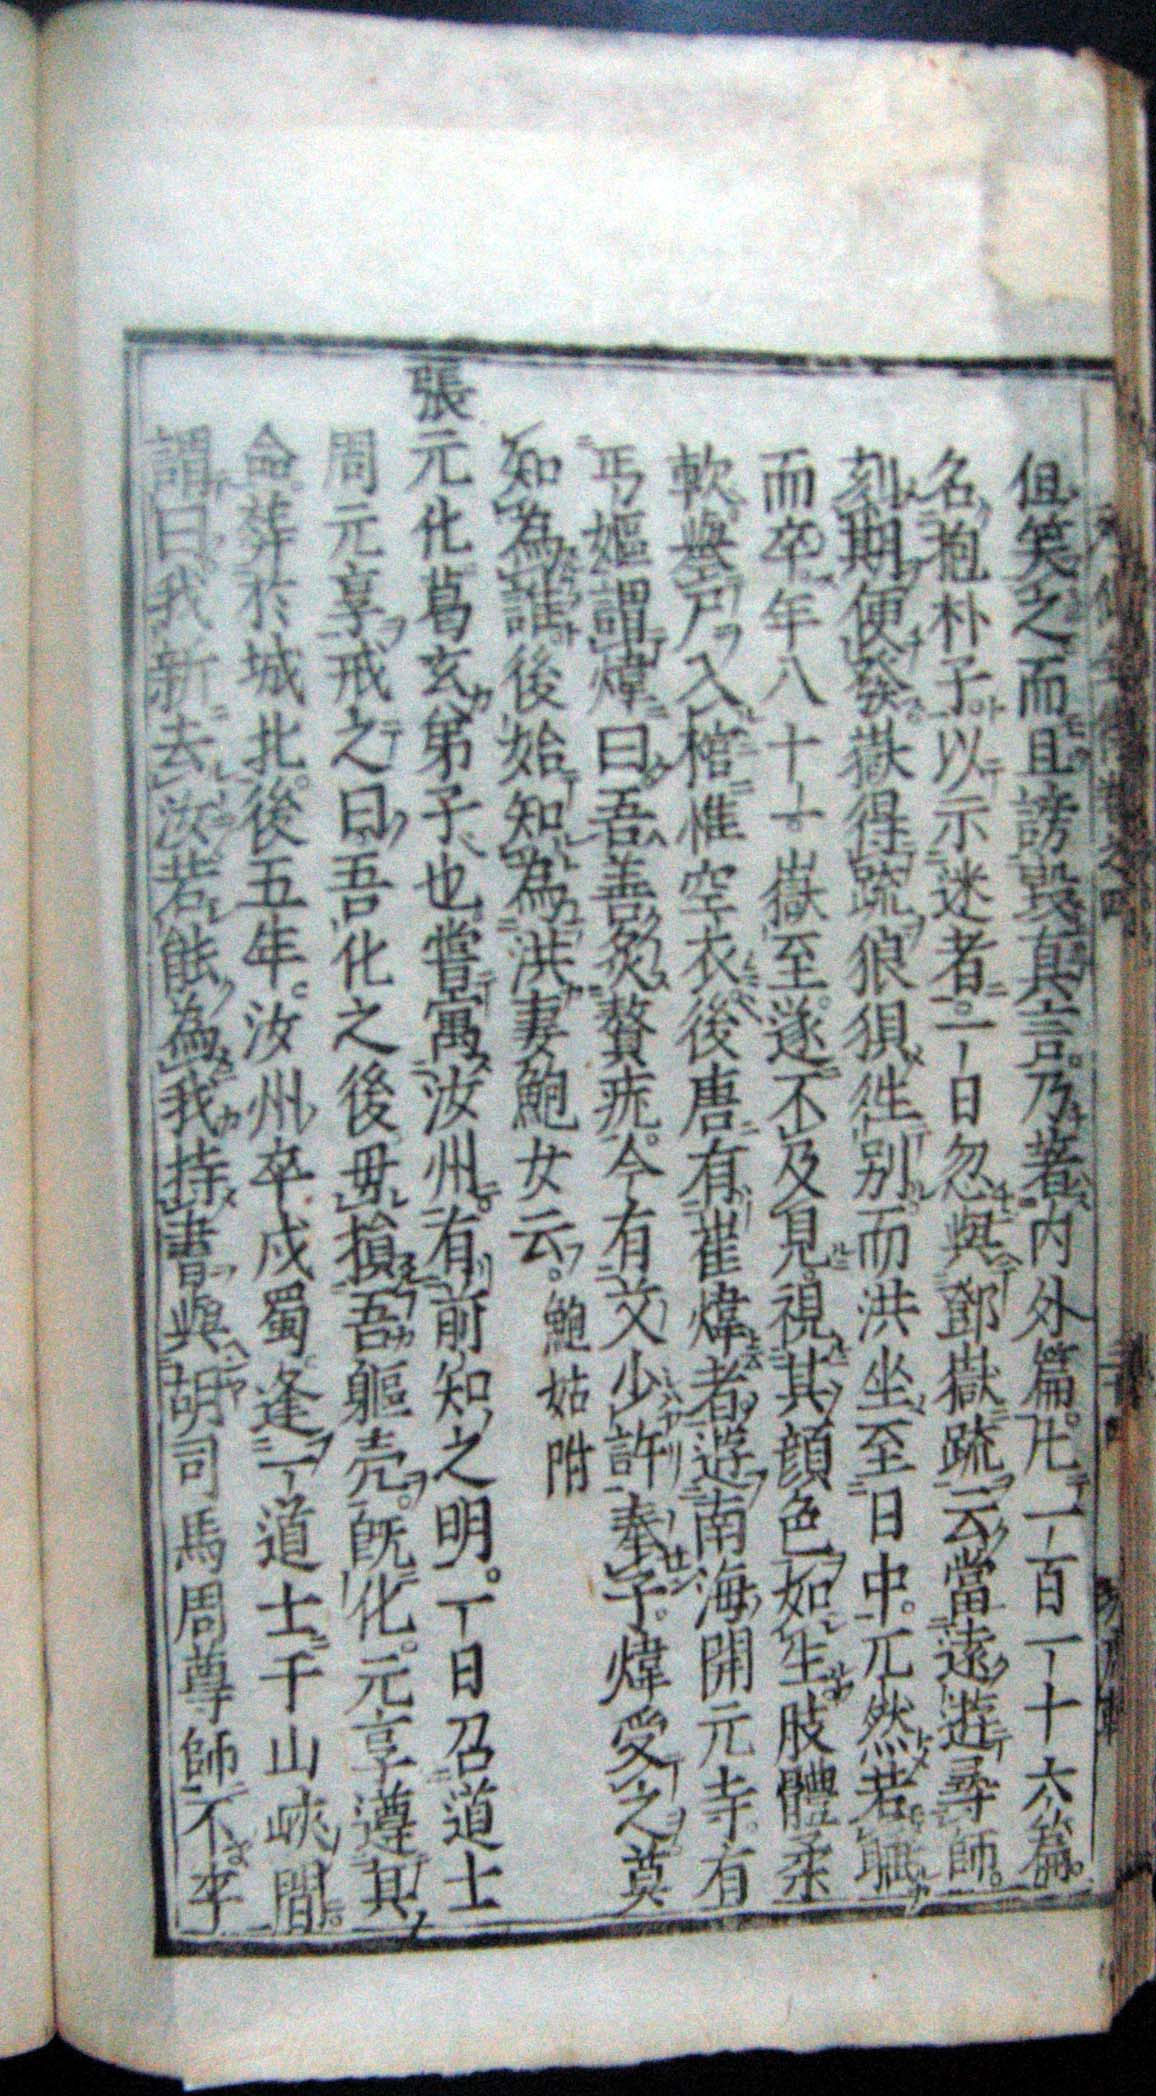 但笑之而且謗毀真言。乃著內外篇。凡一百一十六篇。
名抱朴子。以示迷者。一日忽與鄧嶽䟽云。當遠遊尋師。
刻期便發。嶽得䟽狼狽徃別。而洪坐至日中。兀然若睡
而卒。年八十一。嶽至。遂不及見。視其顏色如生。肢體柔
軟。擧尸入棺。惟空衣。後唐有崔煒者。遊南海開元寺。有
丐嫗謂煒曰。吾善炙贅疣。今有艾少許奉子。煒受之。莫
知為誰。後始知為洪妻鮑女云。鮑姑附
張元化葛玄弟子也。嘗寓汝州。有前知之明。一日召道士
周元享戒之曰。吾化之後。毋損吾軀殼。既化。元享遵其
命。葬於城北。後五年。汝州卒戍蜀。逢一道士于山峽間。
謂曰。我新去汝。若能為我持書與胡司馬周尊師不。卒